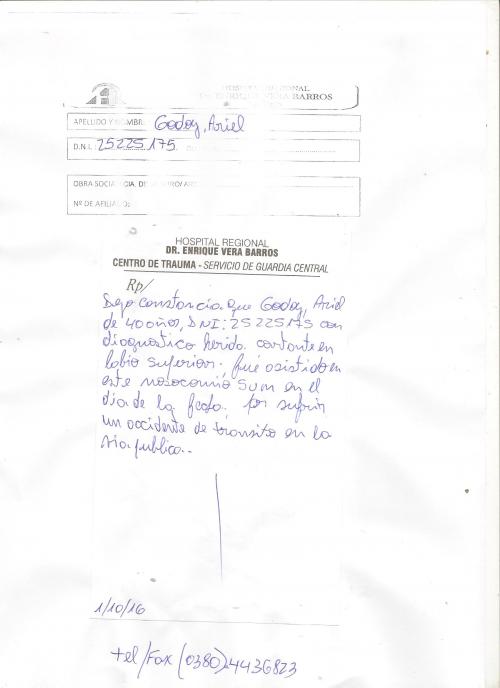 HOSPITAL REGIONAL
DR. ENRIQUE VERA BARROS
APELLIDO Y NOMBRE: Godoy, Ariel
D.N.I.: 25225175
OBRA SOCIAL
Nº DE AFILIADO:
HOSPITAL REGIONAL
DR. ENRIQUE VERA BARROS
CENTRO DE TRAUMA - SERVICIO DE GUARDIA CENTRAL
Rp/
Dejo constancia que Godoy, Ariel
de 40 años, DNI: 25225175 con
diagnostico herida cortante en
labio superior; fué asistido en
este nosocomio en el
día de la fecha, por sufrir
un accidente de transito en la
via publica..
1/10/16
tel/Fax (0380) 4436823